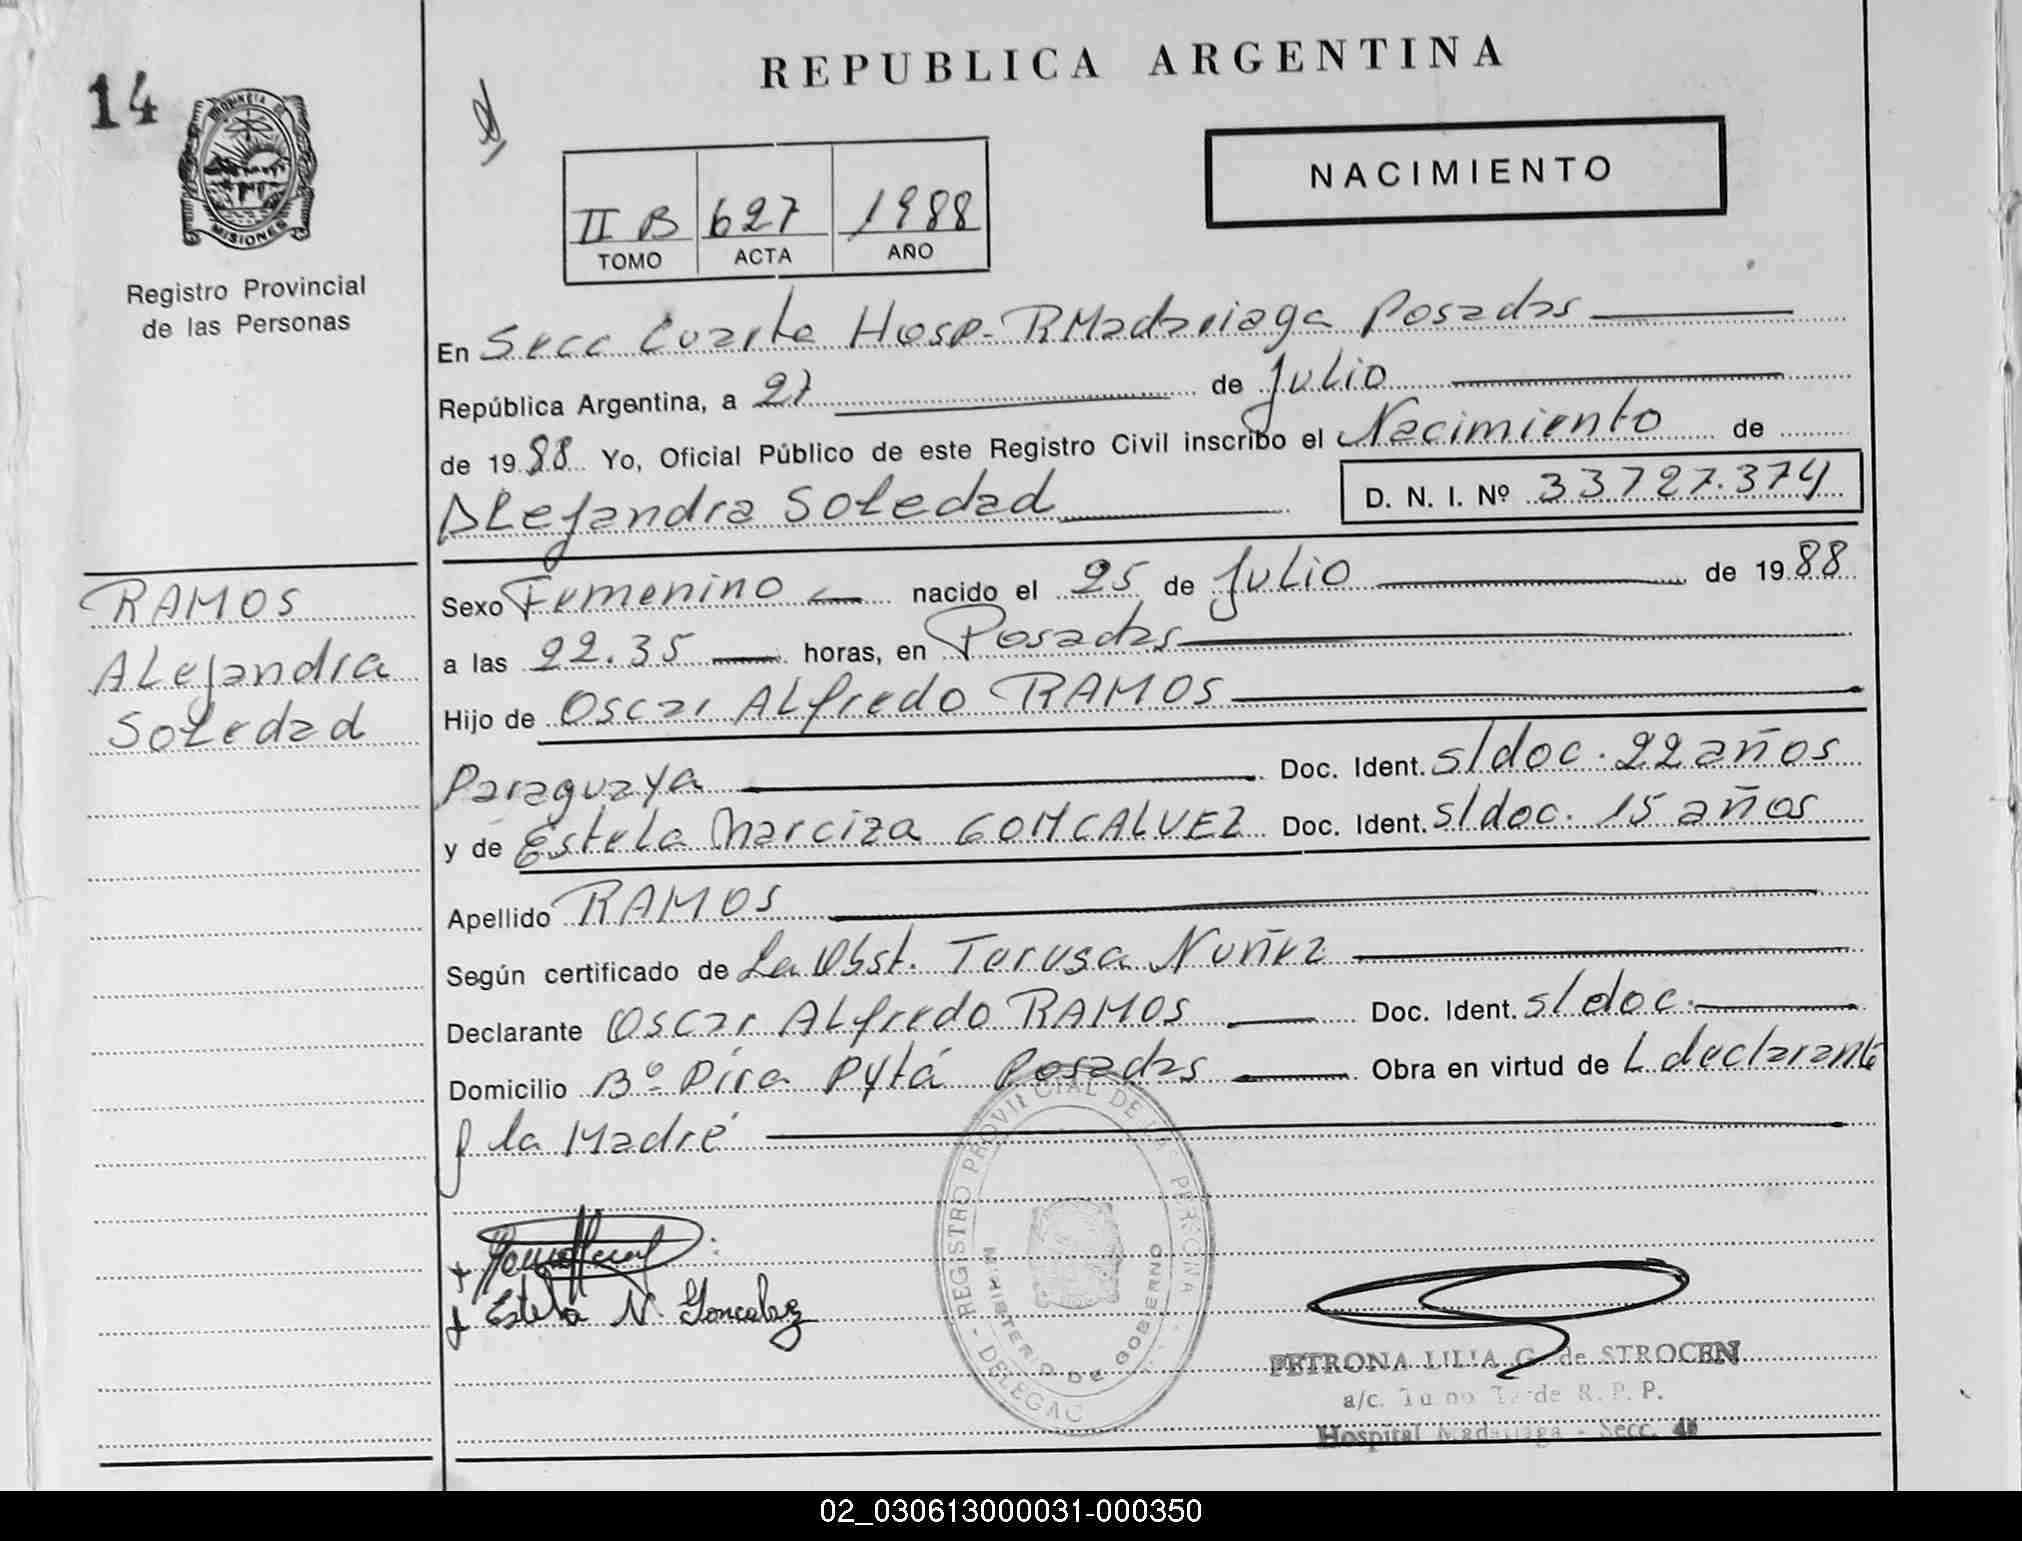 14
PROVINCIA DE
MISIONES
Registro Provincial
de las Personas
RAMOS
Alejandra
Soledad
REPUBLICA ARGENTINA
NACIMIENTO
II B 627 1988
TOMO ACTA AÑO
En Secc Cuarta Hosp. RMadariaga Posadas
República Argentina, a 27 de Julio
de 1988 Yo, Oficial Público de este Registro Civil inscribo el Nacimiento de
Alejandra Soledad D. N. I. Nº 33727.374
Sexo Femenino nacido el 25 de Julio de 1988
a las 22.35 horas, en Posadas
Hijo de Oscar Alfredo RAMOS
Paraguaya Doc. Ident. s/doc. 22 años
y de Estela Narciza GONCALVEZ Doc. Ident. s/doc. 15 años
Apellido RAMOS
Según certificado de La Obst. Teresa Nuñez
Declarante Oscar Alfredo RAMOS Doc. Ident. s/doc.
Domicilio Bº Pira Pytá Posadas Obra en virtud de L declarante
y la Madre
Estela N. Goncalvez
REGISTRO PROVINCIAL DE LAS PERSONAS
MINISTERIO DE GOBIERNO
PETRONA LILIA G. de STROCEN
a/c. Turno Tarde R. P. P.
Hospital Madariaga - Secc. 4ª
02_030613000031-000350